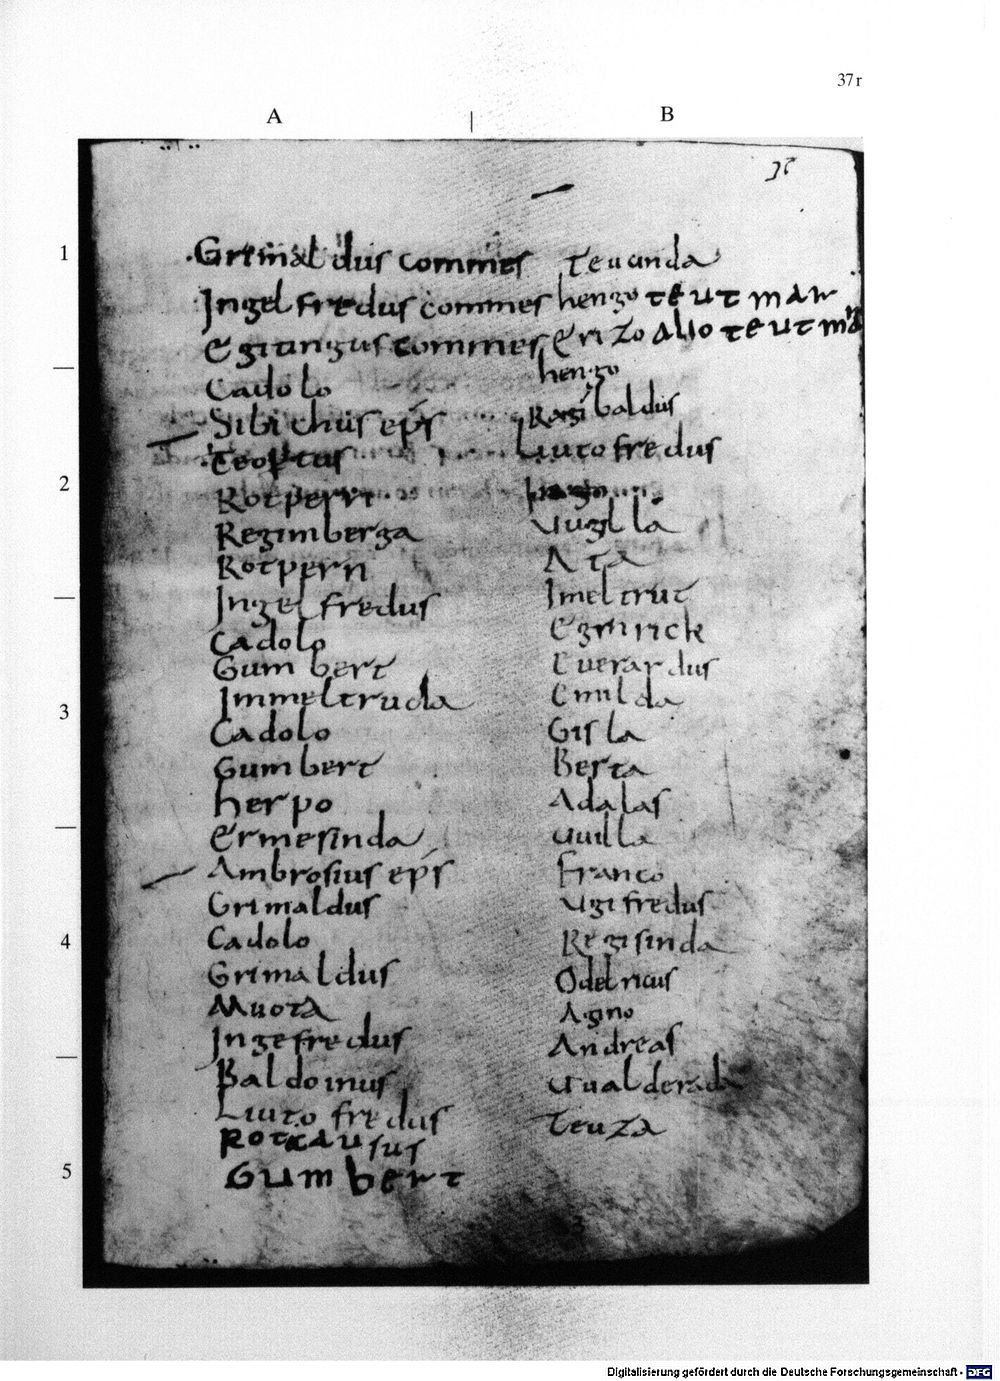 37r
A B
37
1
Grimaldus commes
Ingelfredus commes
Egitingus commes
Cadolo
Sibichus eps
Teoptus
Rotpern
Regimberga
Rotpern
Ingelfredus
Cadolo
Gumbert
Immeltruda
Cadolo
Gumbert
herpo
Ermesinda
Ambrosius eps
Grimaldus
Cadolo
Grimaldus
Muota
Ingefredus
Baldoinus
Liutofredus
Rotcausus
Gumbert
teuanda
hengo teutmar
Erizo allo teutmar
hengo
Ragibaldus
Liutofredus
uugilla
Ata
Imeltrut
Eginrick
Euerardus
Emilda
Gisla
Berta
Adalas
uuilla
Franco
ugifredus
Regisinda
Odelricus
Agino
Andreas
uualderada
Teuza
2
3
4
5
Digitalisierung gefördert durch die Deutsche Forschungsgemeinschaft - DFG